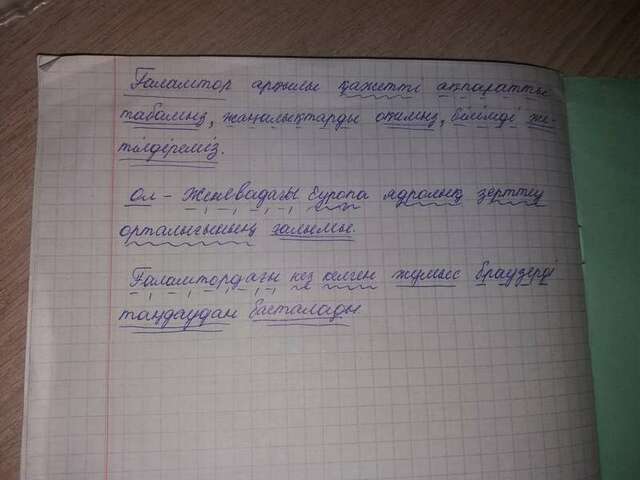 Ғаламтор арқылы қажетті аппаратты
табамыз, жаңалықтарды оқимыз, білімді же-
тілдіреміз.
Ол - Женевадағы Еуропа ядролық зерттеу
орталығының ғалымы.
Ғаламтордағы кез келген жұмыс браузерді
таңдаудан басталады